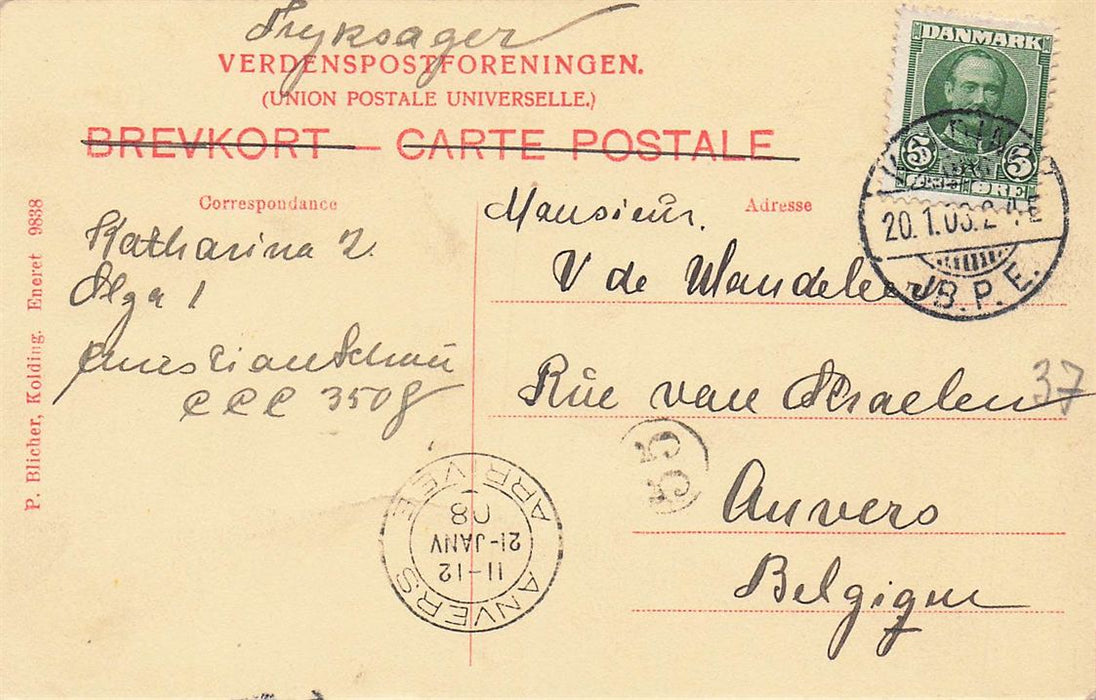 Tryksager
VERDENSPOSTFORENINGEN.
(UNION POSTALE UNIVERSELLE.)
BREVKORT – CARTE POSTALE
DANMARK
5 5
ØRE
20.1.08.2
JB.P.E.
Correspondance
Katharina 2
Olga 1
CCC 350
Adresse
Monsieur.
V de Wandeleer
Rue van Straelen
37
Anvers
Belgique
55
ANVERS
11-12
21-JANV
08
ARRIVEE
P. Blicher, Kolding. Eneret 9838